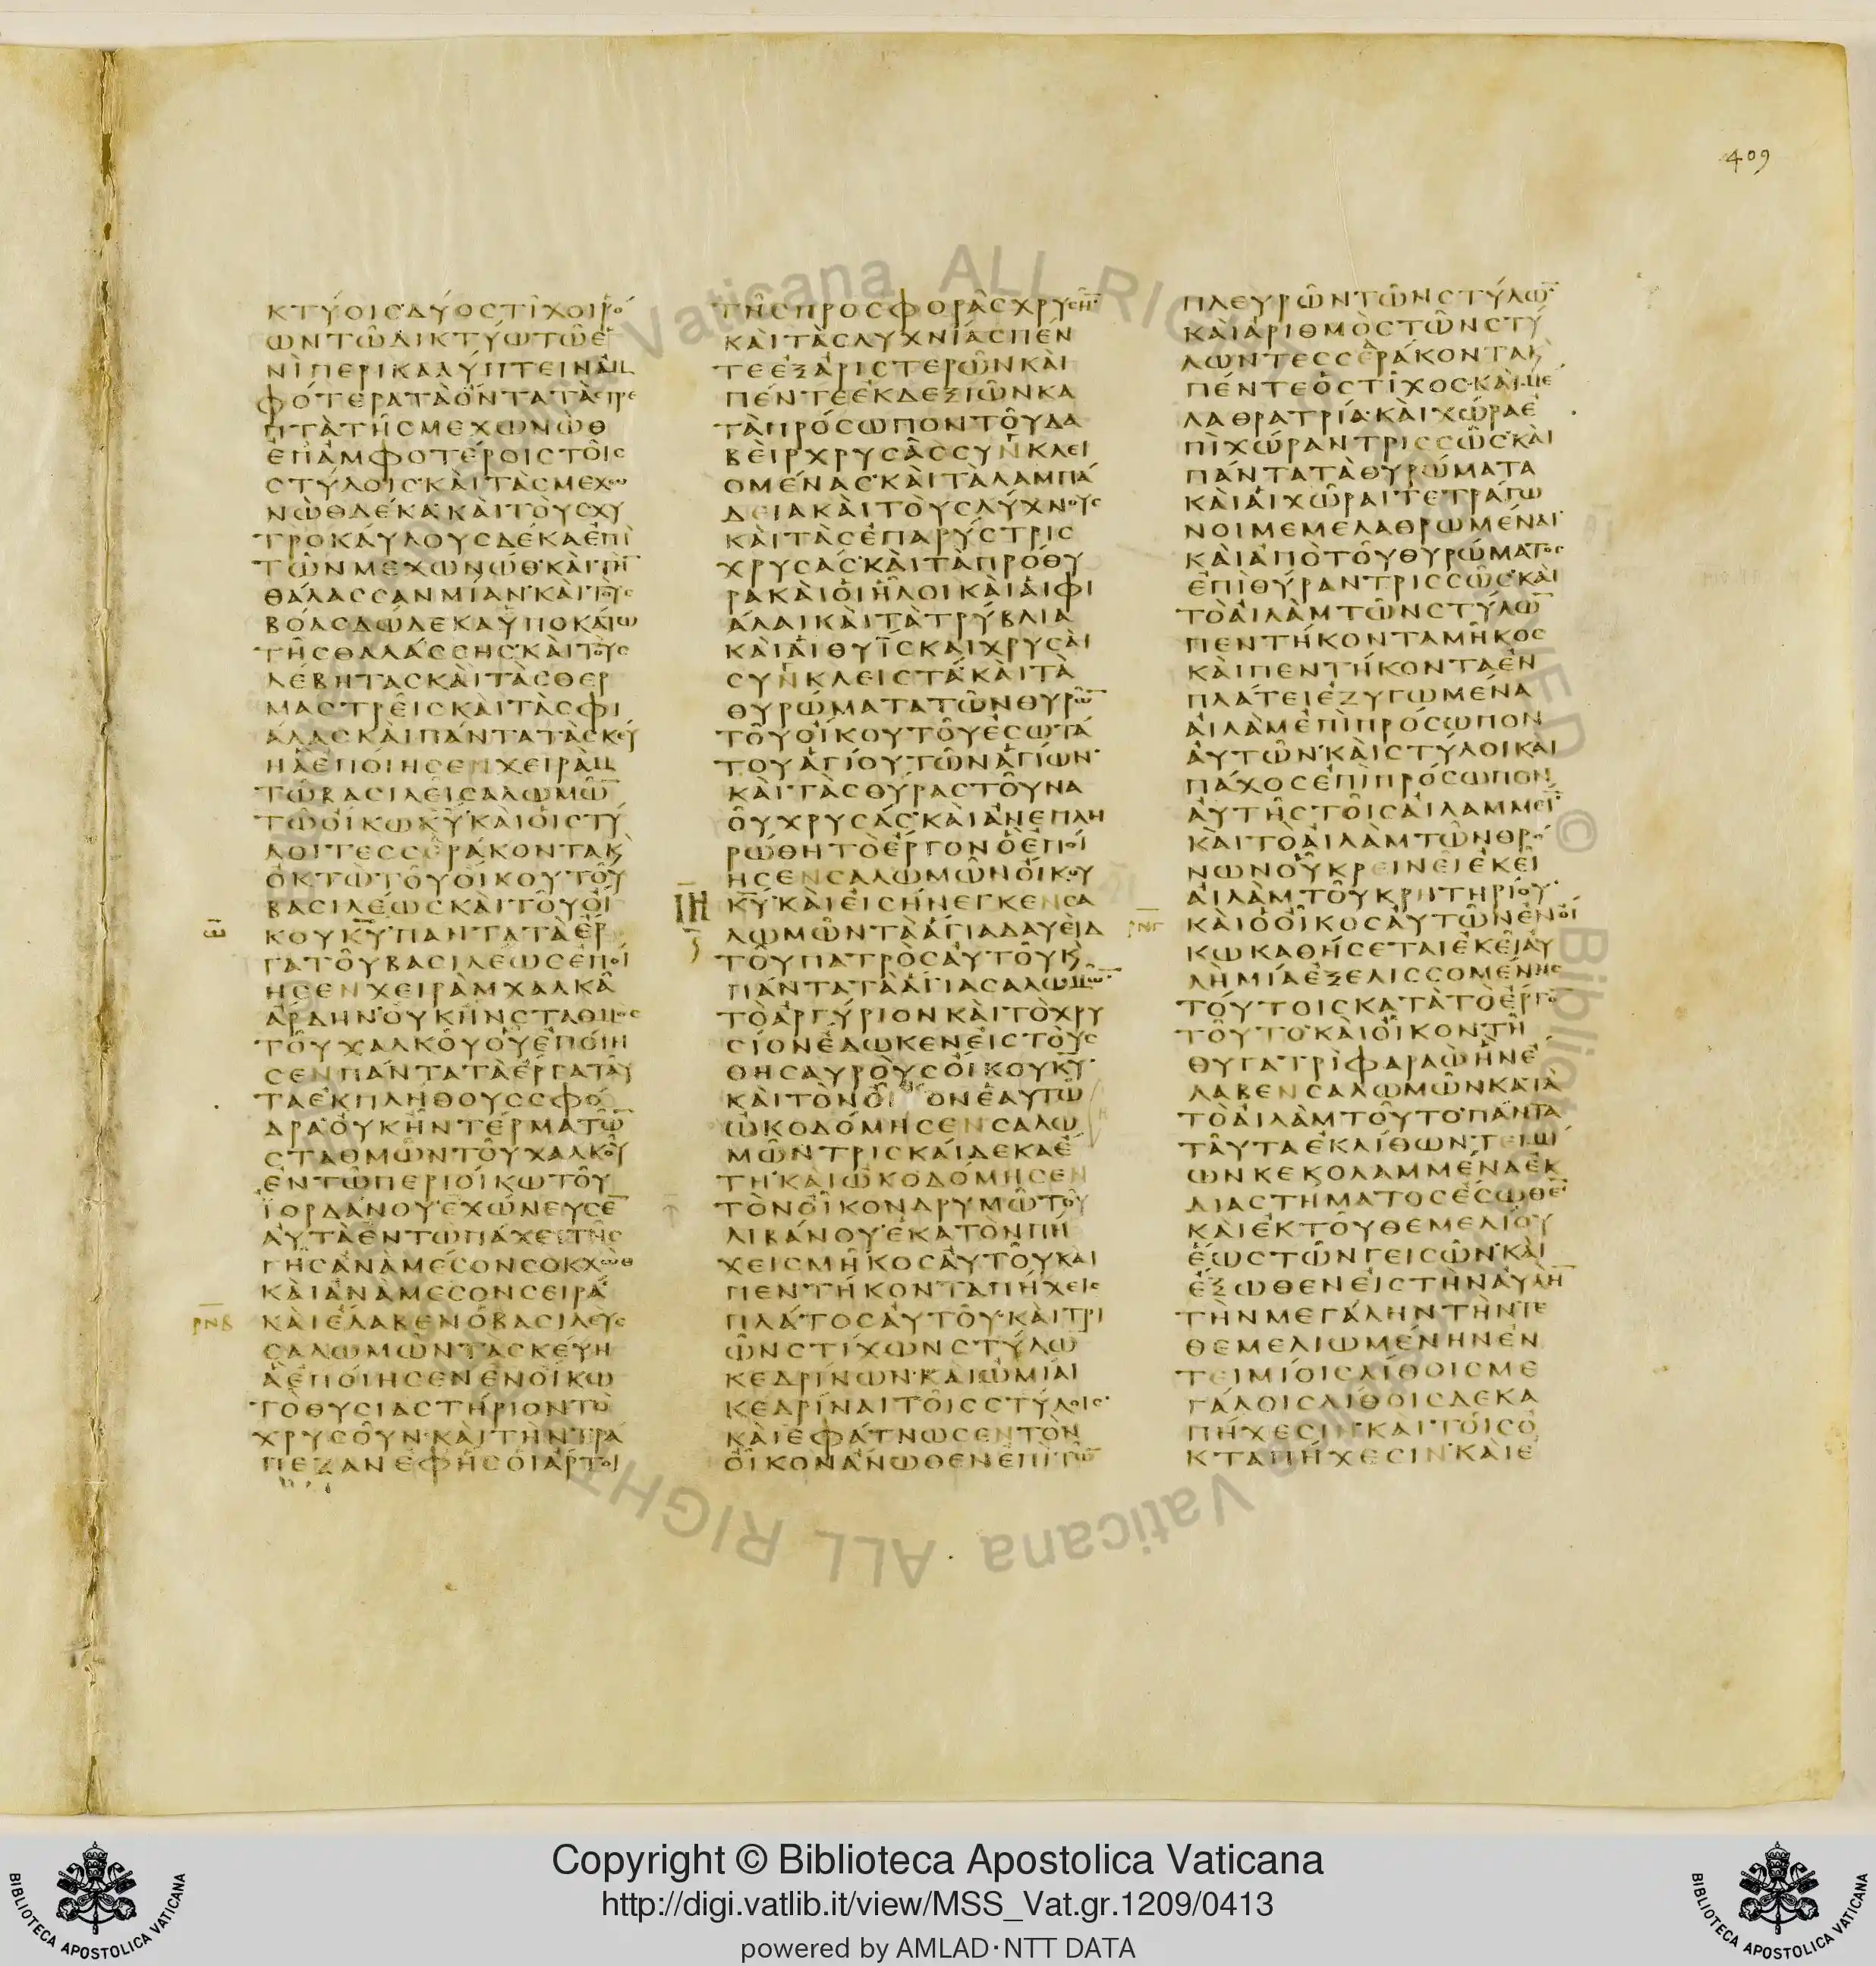 409
ΚΤΥΟΙΣΔΥΟΣΤΙΧΟΙΡΟ
ΩΝΤΩΔΙΚΤΥΩΤΩΕ
ΝΙΠΕΡΙΚΑΛΥΠΤΕΙΝΑΜ
ΦΟΤΕΡΑΤΑΟΝΤΑΤΑΣΤΡΕ
ΠΤΑΤΗΣΜΕΧΩΝΩΘ
ΕΠΑΜΦΟΤΕΡΟΙΣΤΟΙΣ
ΣΤΥΛΟΙΣΚΑΙΤΑΣΜΕΧΩ
ΝΩΘΔΕΚΑΚΑΙΤΟΥΣΧΥ
ΤΡΟΚΑΥΛΟΥΣΔΕΚΑΕΠΙ
ΤΩΝΜΕΧΩΝΩΘΚΑΙΤΗ̅
ΘΑΛΑΣΣΑΝΜΙΑΝΚΑΙΤΟΥΣ
ΒΟΑΣΔΩΔΕΚΑΥΠΟΚΑΤΩ
ΤΗΣΘΑΛΑΣΣΗΣΚΑΙΤΟΥΣ
ΛΕΒΗΤΑΣΚΑΙΤΑΣΘΕΡ
ΜΑΣΤΡΕΙΣΚΑΙΤΑΣΦΙ
ΑΛΑΣΚΑΙΠΑΝΤΑΤΑΣΚΕΥ
ΗΑΕΠΟΙΗΣΕΝΧΕΙΡΑΜ
ΤΩΒΑΣΙΛΕΙΣΑΛΩΜΩ̅
ΤΩΟΙΚΩΚΥ̅ΚΑΙΟΙΣΤΥ
ΛΟΙΤΕΣΣΕΡΑΚΟΝΤΑΚ
ΟΚΤΩΤΟΥΟΙΚΟΥΤΟΥ
ΒΑΣΙΛΕΩΣΚΑΙΤΟΥΟΙ
ΚΟΥΚΥ̅ΠΑΝΤΑΤΑΕΡ
ΓΑΤΟΥΒΑΣΙΛΕΩΣΕΠΟΙ
ΗΣΕΝΧΕΙΡΑΜΧΑΛΚΑ
ΑΡΔΗΝΟΥΚΗΝΣΤΑΘΜΟΣ
ΤΟΥΧΑΛΚΟΥΟΥΕΠΟΙΗ
ΣΕΝΠΑΝΤΑΤΑΕΡΓΑΤΑΥ
ΤΑΕΚΠΛΗΘΟΥΣΣΦΟ
ΔΡΑΟΥΚΗΝΤΕΡΜΑΤΩ̅
ΣΤΑΘΜΩΝΤΟΥΧΑΛΚΟΥ
ΕΝΤΩΠΕΡΙΟΙΚΩΤΟΥ
ΙΟΡΔΑΝΟΥΕΧΩΝΕΥΣΕ̅
ΑΥΤΑΕΝΤΩΠΑΧΕΙΤΗΣ
ΓΗΣΑΝΑΜΕΣΟΝΣΟΚΧΩΘ
ΚΑΙΑΝΑΜΕΣΟΝΣΕΙΡΑ
ΡΝΒ ΚΑΙΕΛΑΒΕΝΟΒΑΣΙΛΕΥΣ
ΣΑΛΩΜΩΝΤΑΣΚΕΥΗ
ΑΕΠΟΙΗΣΕΝΕΝΟΙΚΩ
ΤΟΘΥΣΙΑΣΤΗΡΙΟΝΤΟ
ΧΡΥΣΟΥΝΚΑΙΤΗΝΤΡΑ
ΠΕΖΑΝΕΦΗΣΟΙΑΡΤΟΙ
ΤΗΣΠΡΟΣΦΟΡΑΣΧΡΥΣΗ̅
ΚΑΙΤΑΣΛΥΧΝΙΑΣΠΕΝ
ΤΕΕΞΑΡΙΣΤΕΡΩΝΚΑΙ
ΠΕΝΤΕΕΚΔΕΞΙΩΝΚΑ
ΤΑΠΡΟΣΩΠΟΝΤΟΥΔΑ
ΒΕΙΡΧΡΥΣΑΣΣΥΝΚΛΕΙ
ΟΜΕΝΑΣΚΑΙΤΑΛΑΜΠΑ
ΔΕΙΑΚΑΙΤΟΥΣΛΥΧΝΟΥΣ
ΚΑΙΤΑΣΕΠΑΡΥΣΤΡΙΣ
ΧΡΥΣΑΣΚΑΙΤΑΠΡΟΘΥ
ΡΑΚΑΙΟΙΗΛΟΙΚΑΙΑΙΦΙ
ΑΛΑΙΚΑΙΤΑΤΡΥΒΛΙΑ
ΚΑΙΑΙΘΥΙΣΚΑΙΧΡΥΣΑΙ
ΣΥΝΚΛΕΙΣΤΑΚΑΙΤΑ
ΘΥΡΩΜΑΤΑΤΩΝΘΥΡΩ̅
ΤΟΥΟΙΚΟΥΤΟΥΕΣΩΤΑ
ΤΟΥΑΓΙΟΥΤΩΝΑΓΙΩΝ
ΚΑΙΤΑΣΘΥΡΑΣΤΟΥΝΑ
ΟΥΧΡΥΣΑΣΚΑΙΑΝΕΠΛΗ
ΡΩΘΗΤΟΕΡΓΟΝΟΕΠΟΙ
ΗΣΕΝΣΑΛΩΜΩΝΟΙΚΟΥ
ΚΥ̅ΚΑΙΕΙΣΗΝΕΓΚΕΝΣΑ
ΛΩΜΩΝΤΑΑΓΙΑΔΑΥΕΙΔ
ΤΟΥΠΑΤΡΟΣΑΥΤΟΥΚ
ΠΑΝΤΑΤΑΑΓΙΑΣΑΛΩΜΩ̅
ΤΟΑΡΓΥΡΙΟΝΚΑΙΤΟΧΡΥ
ΣΙΟΝΕΔΩΚΕΝΕΙΣΤΟΥΣ
ΘΗΣΑΥΡΟΥΣΟΙΚΟΥΚΥ̅
ΚΑΙΤΟΝΟΙΚΟΝΕΑΥΤΩ
ΩΚΟΔΟΜΗΣΕΝΣΑΛΩ
ΜΩΝΤΡΙΣΚΑΙΔΕΚΑΕ
ΤΗΚΑΙΩΚΟΔΟΜΗΣΕΝ
ΤΟΝΟΙΚΟΝΔΡΥΜΩΤΟΥ
ΛΙΒΑΝΟΥΕΚΑΤΟΝΠΗ
ΧΕΙΣΜΗΚΟΣΑΥΤΟΥΚΑΙ
ΠΕΝΤΗΚΟΝΤΑΠΗΧΕΙΣ
ΠΛΑΤΟΣΑΥΤΟΥΚΑΙΤΡΙ
ΩΝΣΤΙΧΩΝΣΤΥΛΩ̅
ΚΕΔΡΙΝΩΝΚΑΙΩΜΙΑΙ
ΚΕΔΡΙΝΑΙΤΟΙΣΣΤΥΛΟΙΣ
ΚΑΙΕΦΑΤΝΩΣΕΝΤΟΝ
ΟΙΚΟΝΑΝΩΘΕΝΕΠΙΤΩ̅
ΠΛΕΥΡΩΝΤΩΝΣΤΥΛΩ̅
ΚΑΙΑΡΙΘΜΟΣΤΩΝΣΤΥ
ΛΩΝΤΕΣΣΕΡΑΚΟΝΤΑΚ
ΠΕΝΤΕΟΣΤΙΧΟΣΚΑΙΜΕ
ΛΑΘΡΑΤΡΙΑΚΑΙΧΩΡΑΕ
ΠΙΧΩΡΑΝΤΡΙΣΣΩΣΚΑΙ
ΠΑΝΤΑΤΑΘΥΡΩΜΑΤΑ
ΚΑΙΑΙΧΩΡΑΙΤΕΤΡΑΓΩ
ΝΟΙΜΕΜΕΛΑΘΡΩΜΕΝΑΙ
ΚΑΙΑΠΟΤΟΥΘΥΡΩΜΑΤΟΣ
ΕΠΙΘΥΡΑΝΤΡΙΣΣΩΣΚΑΙ
ΤΟΑΙΛΑΜΤΩΝΣΤΥΛΩ̅
ΠΕΝΤΗΚΟΝΤΑΜΗΚΟΣ
ΚΑΙΠΕΝΤΗΚΟΝΤΑΕΝ
ΠΛΑΤΕΙΕΖΥΓΩΜΕΝΑ
ΑΙΛΑΜΕΠΙΠΡΟΣΩΠΟΝ
ΑΥΤΩΝΚΑΙΣΤΥΛΟΙΚΑΙ
ΠΑΧΟΣΕΠΙΠΡΟΣΩΠΟΝ
ΑΥΤΗΣΤΟΙΣΑΙΛΑΜΜΕΙ̅
ΚΑΙΤΟΑΙΛΑΜΤΩΝΘΡΟ
ΝΩΝΟΥΚΡΕΙΝΕΙΕΚΕΙ
ΑΙΛΑΜΤΟΥΚΡΙΤΗΡΙΟΥ
ΡΝΓ ΚΑΙΟΟΙΚΟΣΑΥΤΩΝΕΝΟΙ
ΚΩΚΑΘΗΣΕΤΑΙΕΚΕΙΑΥ
ΛΗΜΙΑΕΞΕΛΙΣΣΟΜΕΝΗΣ
ΤΟΥΤΟΙΣΚΑΤΑΤΟΕΡΓΟ̅
ΤΟΥΤΟΚΑΙΟΙΚΟΝΤΗ
ΘΥΓΑΤΡΙΦΑΡΑΩΗΝΕ
ΛΑΒΕΝΣΑΛΩΜΩΝΚΑΤΑ
ΤΟΑΙΛΑΜΤΟΥΤΟΠΑΝΤΑ
ΤΑΥΤΑΕΚΛΙΘΩΝΤΕΙΜΙ
ΩΝΚΕΚΟΛΑΜΜΕΝΑΕΚ
ΔΙΑΣΤΗΜΑΤΟΣΕΣΩΘΕ̅
ΚΑΙΕΚΤΟΥΘΕΜΕΛΙΟΥ
ΕΩΣΤΩΝΓΕΙΣΩΝΚΑΙ
ΕΞΩΘΕΝΕΙΣΤΗΝΑΥΛΗ̅
ΤΗΝΜΕΓΑΛΗΝΤΗΝΤΕ
ΘΕΜΕΛΙΩΜΕΝΗΝΕΝ
ΤΕΙΜΙΟΙΣΛΙΘΟΙΣΜΕ
ΓΑΛΟΙΣΛΙΘΟΙΣΔΕΚΑ
ΠΗΧΕΣΙΝΚΑΙΤΟΙΣΟ
ΚΤΑΠΗΧΕΣΙΝΚΑΙΕ
Copyright © Biblioteca Apostolica Vaticana
http://digi.vatlib.it/view/MSS_Vat.gr.1209/0413
powered by AMLAD·NTT DATA
BIBLIOTECA APOSTOLICA VATICANA
BIBLIOTECA APOSTOLICA VATICANA